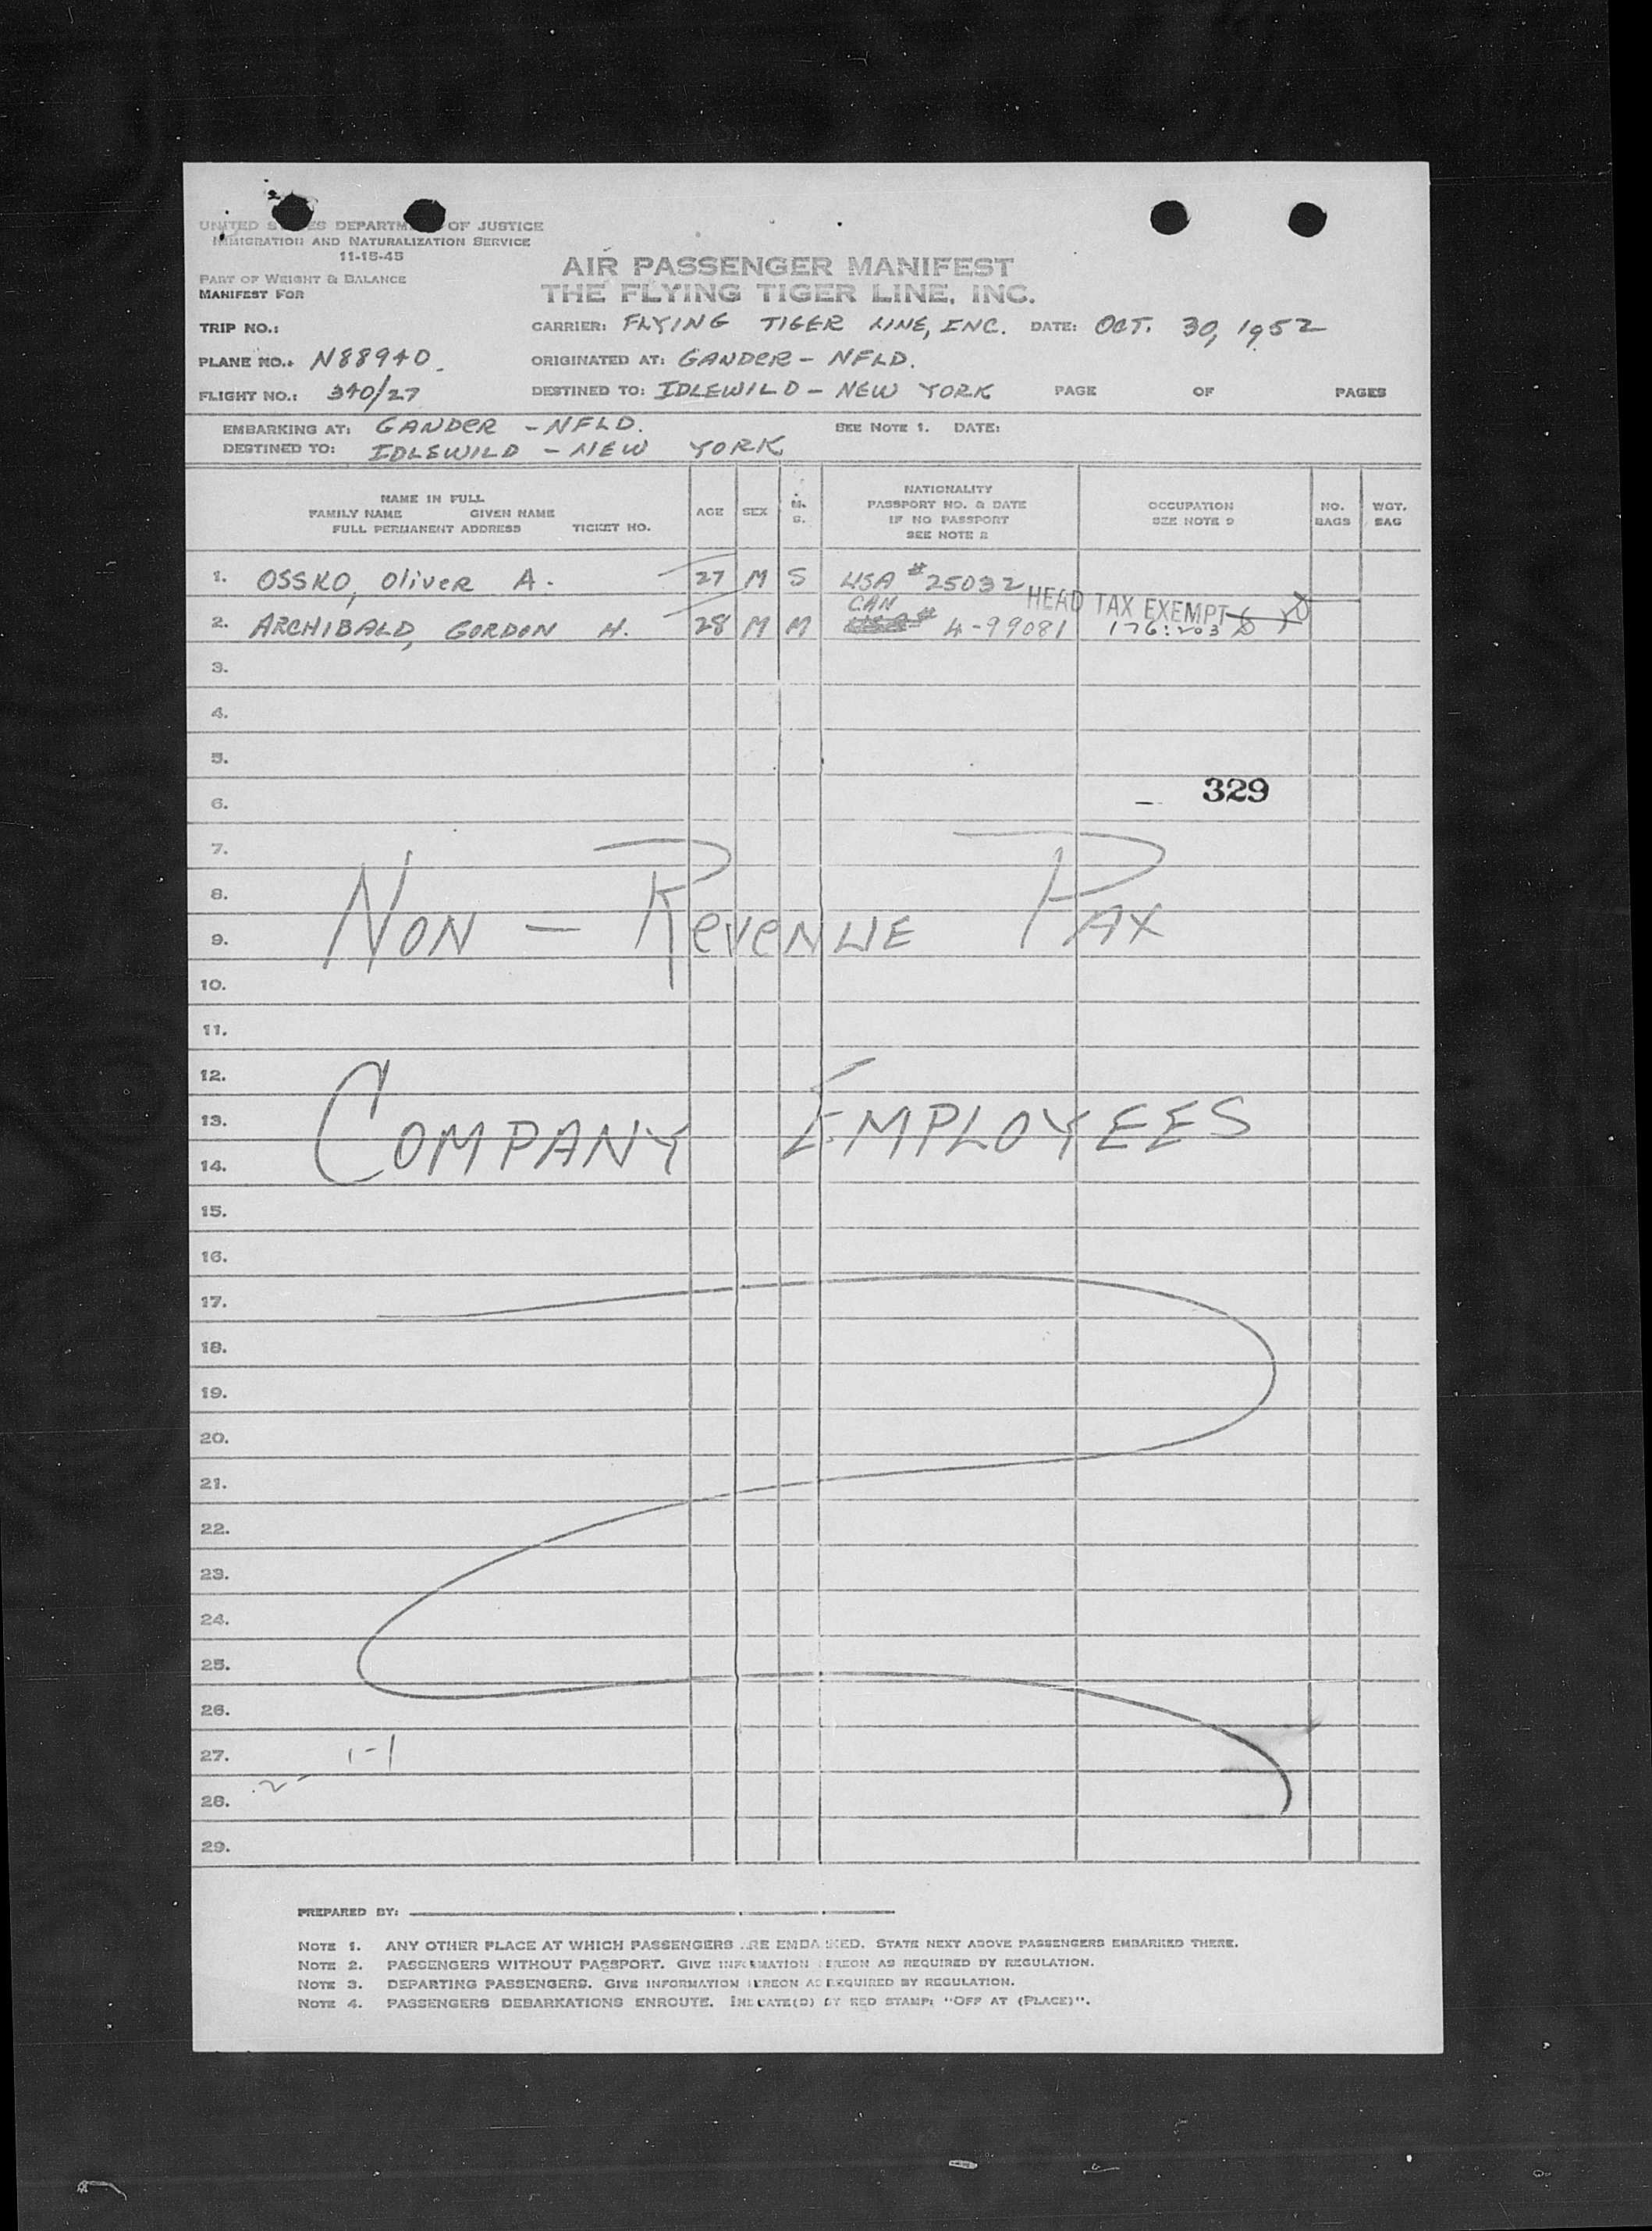 UNITED STATES DEPARTMENT OF JUSTICE
IMMIGRATION AND NATURALIZATION SERVICE
11-15-45
PART OF WEIGHT & BALANCE
MANIFEST FOR
AIR PASSENGER MANIFEST
THE FLYING TIGER LINE, INC.
TRIP NO.: CARRIER: FLYING TIGER LINE, INC. DATE: OCT. 30, 1952
PLANE NO.: N88940 ORIGINATED AT: GANDER - NFLD.
FLIGHT NO.: 340/27 DESTINED TO: IDLEWILD - NEW YORK PAGE OF PAGES
EMBARKING AT: GANDER - NFLD. SEE NOTE 1. DATE:
DESTINED TO: IDLEWILD - NEW YORK
NAME IN FULL
FAMILY NAME GIVEN NAME
FULL PERMANENT ADDRESS TICKET NO.
AGE SEX M. S.
NATIONALITY
PASSPORT NO. & DATE
IF NO PASSPORT
SEE NOTE 2
OCCUPATION
SEE NOTE 3
NO. BAGS
WGT. BAG
1. OSSKO, Oliver A. 27 M S USA # 25032
HEAD TAX EXEMPT
2. ARCHIBALD, GORDON H. 28 M M CAN # 4-99081 176:203
3.
4.
5.
329
6.
7.
8.
9. NON - REVENUE PAX
10.
11.
12.
13.
COMPANY EMPLOYEES
14.
15.
16.
17.
18.
19.
20.
21.
22.
23.
24.
25.
26.
27. 1-1
28. 2
29.
PREPARED BY:
NOTE 1. ANY OTHER PLACE AT WHICH PASSENGERS ARE EMBARKED. STATE NEXT ABOVE PASSENGERS EMBARKED THERE.
NOTE 2. PASSENGERS WITHOUT PASSPORT. GIVE INFORMATION HEREON AS REQUIRED BY REGULATION.
NOTE 3. DEPARTING PASSENGERS. GIVE INFORMATION HEREON AS REQUIRED BY REGULATION.
NOTE 4. PASSENGERS DEBARKATIONS ENROUTE. INDICATE(D) BY RED STAMP: "OFF AT (PLACE)".